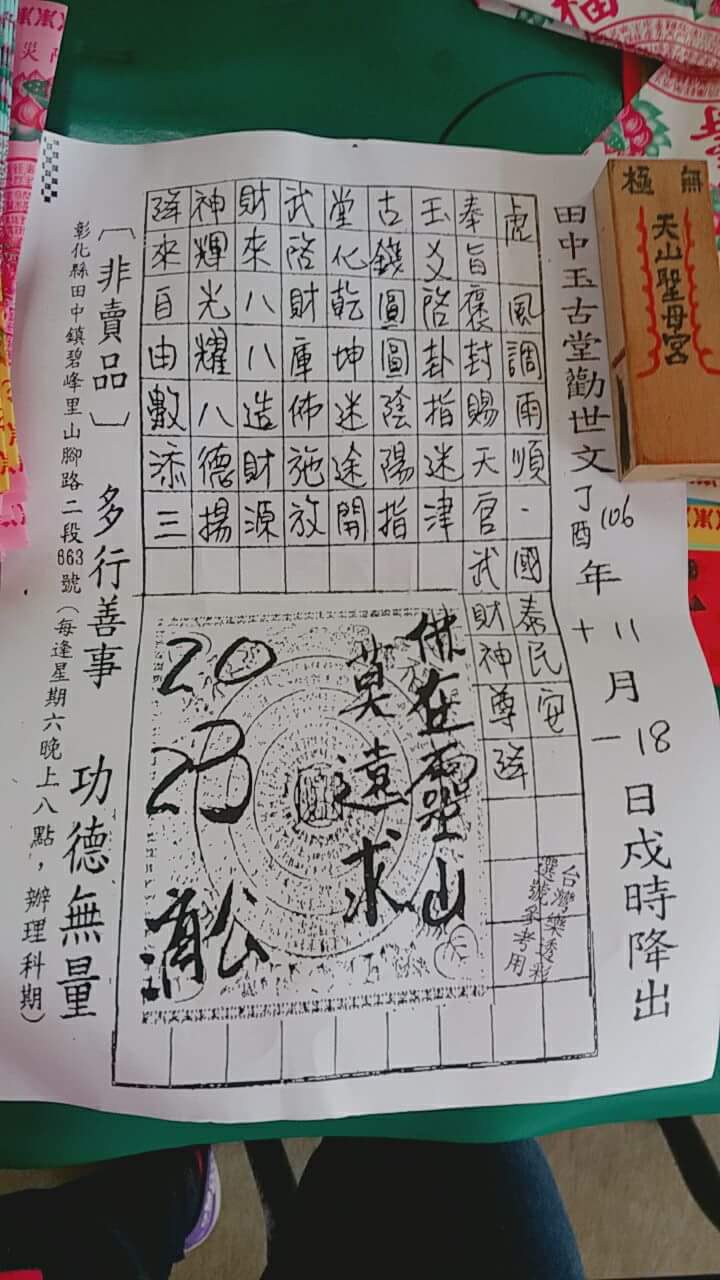 無極
天山聖母宮
田中玉古堂勸世文丁酉106年十11月一18日戌時降出
虎 風調雨順-國泰民安
奉旨褒封賜天官武財神尊降
玉爻啓卦指迷津
古錢圓圖陰陽指
堂化乾坤迷途開
武啓財庫佈施放
財來八八造財源
神輝光耀八德揚
降來自由數添三
台灣樂透彩
選號參考用
佛在靈山
莫遠求
20
23
濟公
〔非賣品〕 多行善事 功德無量
彰化縣田中鎮碧峰里山腳路二段663號(每逢星期六晚上八點，辦理科期)